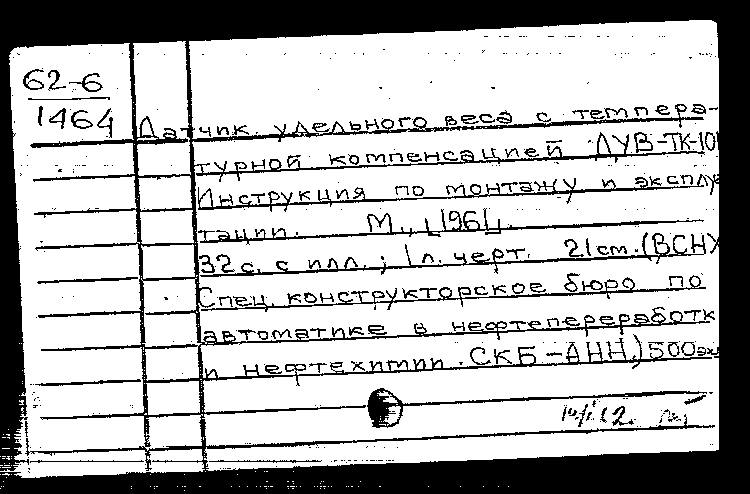 62-6
1464
Датчик удельного веса с темпера-
турной компенсацией ДУВ-ТК-101
Инструкция по монтажу и эксплуа
тации. М., [1961].
32 с. с илл.; 1 л. черт. 21 см. (ВСНХ
Спец. конструкторское бюро по
автоматике в нефтепереработк
и нефтехимии. СКБ-АНН.) 500 эк